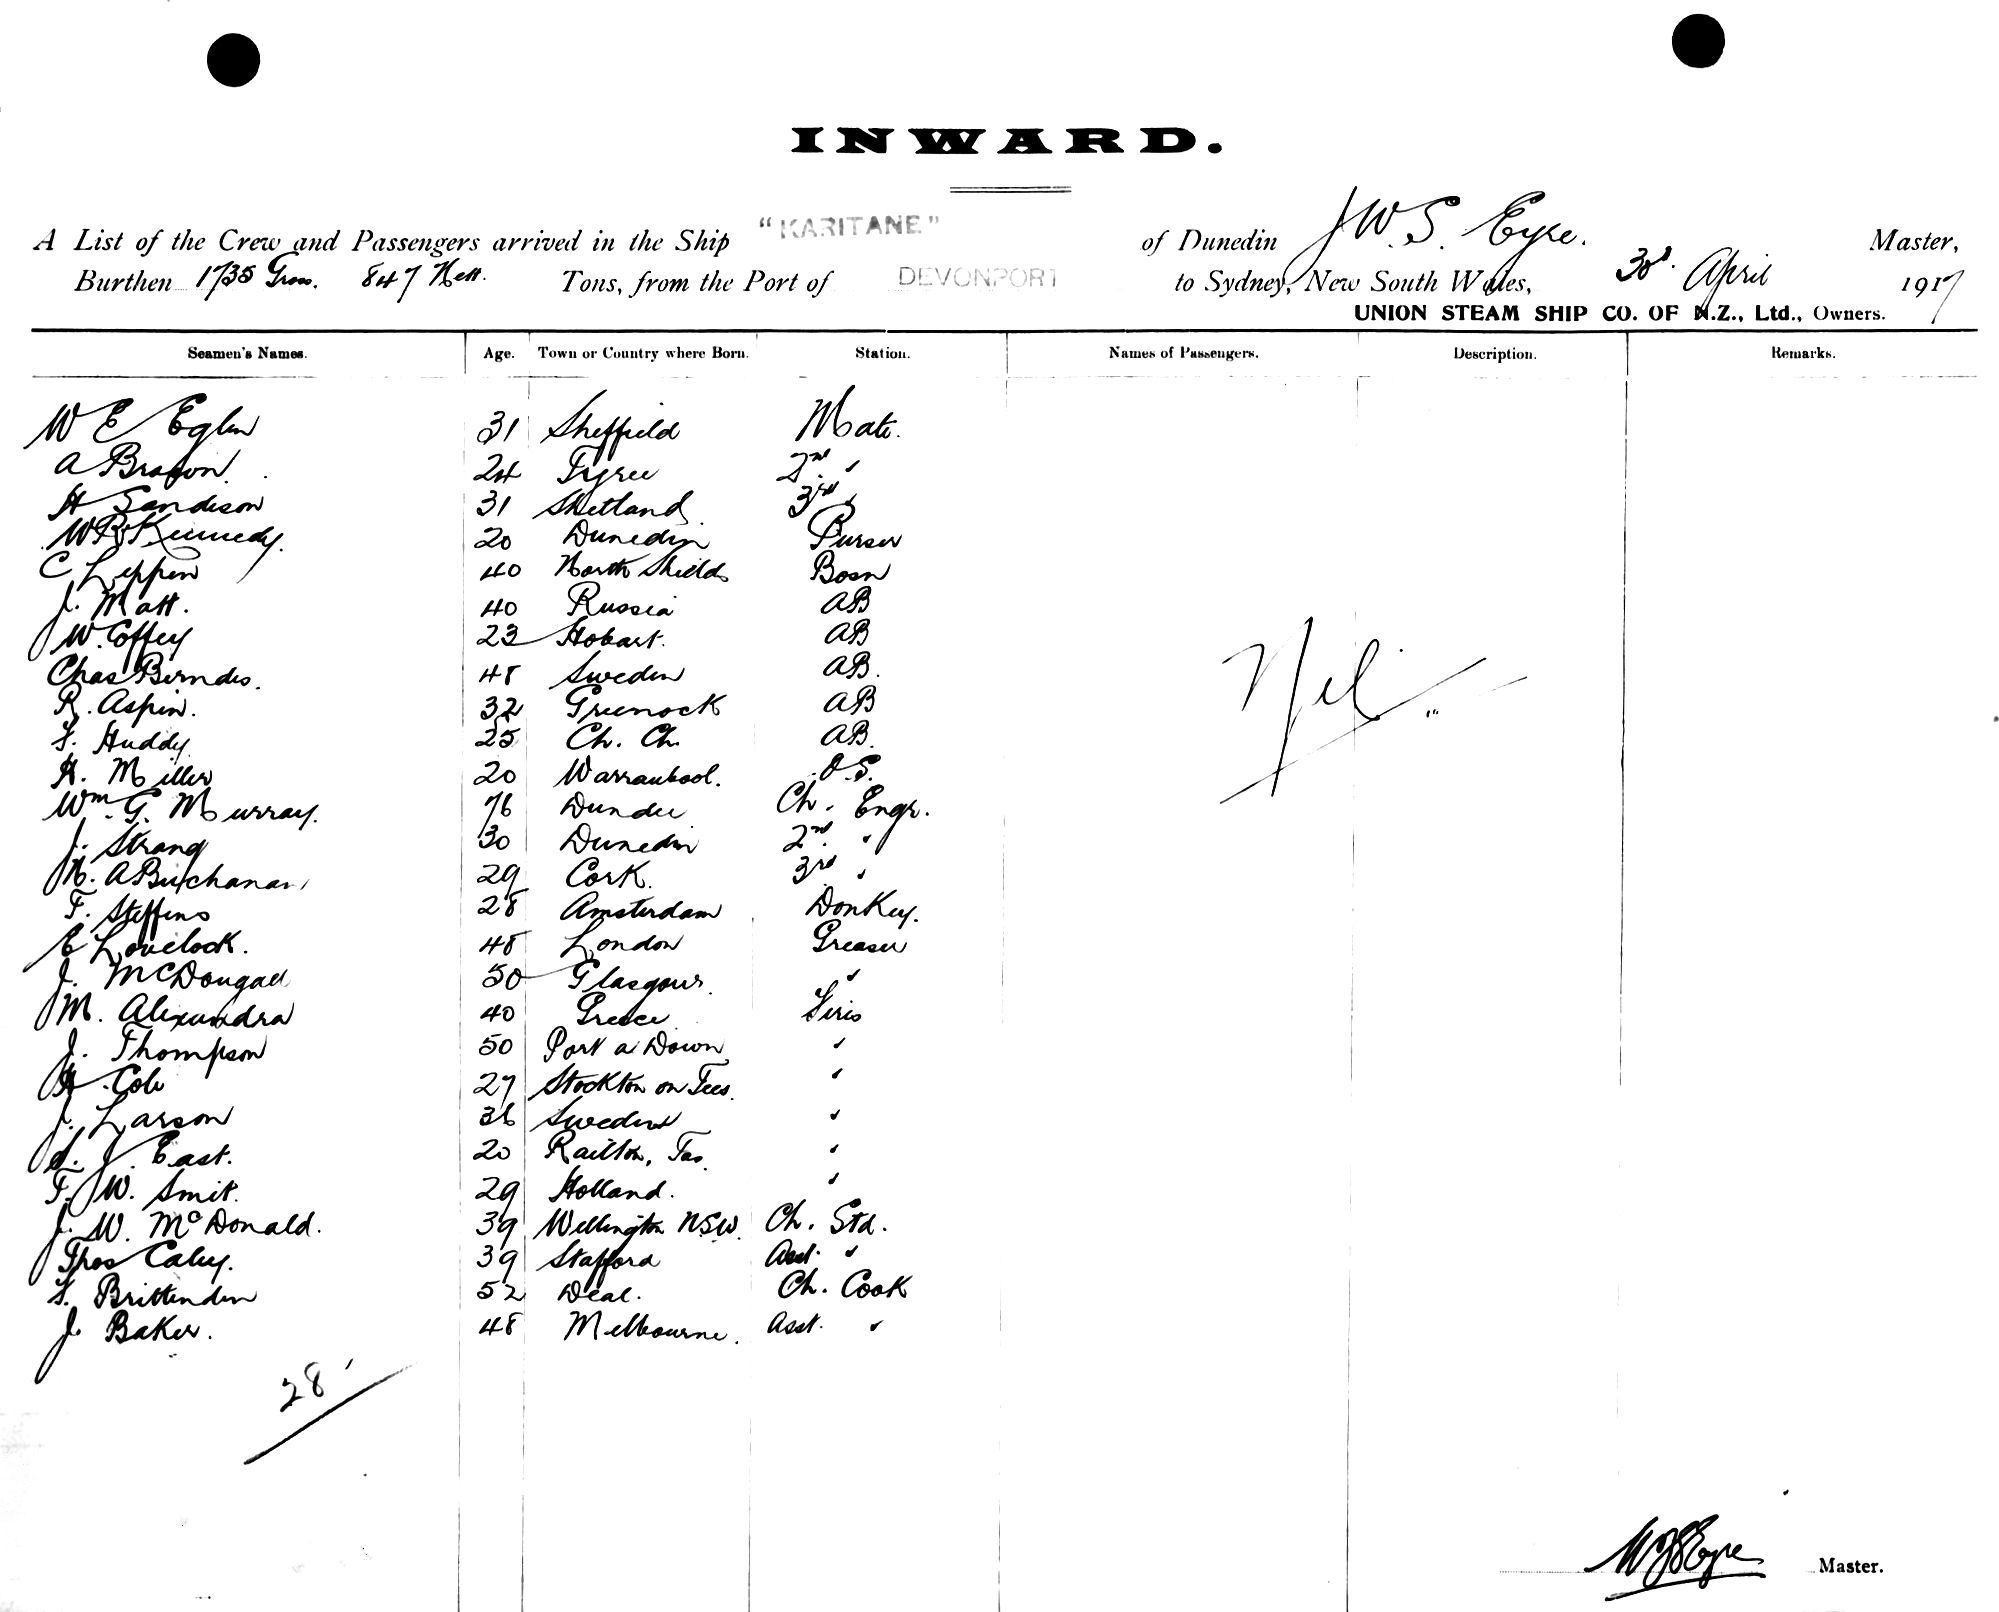 INWARD.
A List of the Crew and Passengers arrived in the Ship "KARITANE" of Dunedin J W. S. Eyre. Master,
Burthen 1735 Gross. 847 Nett. Tons, from the Port of DEVONPORT to Sydney, New South Wales, 30th April 1917
UNION STEAM SHIP CO. OF N.Z., Ltd., Owners.
Seamen's Names. Age. Town or Country where Born. Station. Names of Passengers. Description. Remarks.
W E Eglen 31 Sheffield Mate.
A Brown. 24 Tyree 2nd "
H Sandison 31 Shetland 3rd "
W R Kennedy. 20 Dunedin Purser
C Leppen 40 North Shields Bosn
J. Matt. 40 Russia AB
W. Coffey 23 Hobart. AB
Chas Berndes. 48 Sweden AB.
R. Aspin. 32 Greenock AB
F. Huddy 25 Ch. Ch. AB.
H. Miller 20 Warranbool. O.S.
Wm. G. Murray. 76 Dundee Ch. Engr.
J. Strang 30 Dunedin 2nd. "
N. A Buchanan 29 Cork. 3rd "
F. Steffens 28 Amsterdam Donkey.
E Lovelock. 48 London Greaser
J. McDougall 50 Glasgow. "
M. Alexandra 40 Greece Firis
J. Thompson 50 Port a Down "
H. Cole 27 Stockton on Tees. "
J. Larson 36 Sweden "
J. East. 20 Railton, Tas. "
F. W. Smit. 29 Holland. "
J. W. McDonald. 39 Wellington NSW. Ch. Std.
Thos Caley. 39 Stafford Asst. "
F. Brittenden 52 Deal. Ch. Cook
J. Baker. 48 Melbourne. Asst. "
Nil
28
W J S Eyre Master.